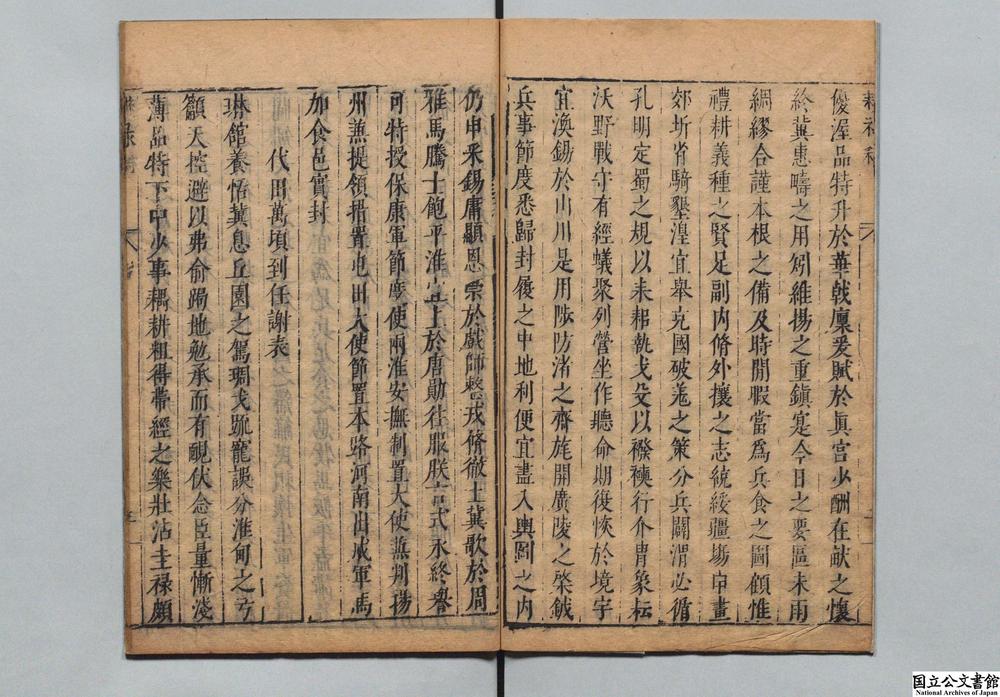 優渥品特升於華戟廩爰賦於真宫少酬在畎之懷
終冀惠疇之用矧維揚之重鎮寔今日之要區未雨
綢繆合謹本根之備及時閒暇當為兵食之圖顧惟
禮耕義種之賢足副内脩外攘之志統綏疆埸申畫
郊圻省騎墾湟宜舉充國破羗之策分兵關渭必循
孔明定蜀之規以耒耜執戈殳以襏襫行介胄象耘
沃野戰守有經蟻聚列營坐作聽命期復恢於境宇
宜渙錫於山川是用陟防渚之齋旄開廣陵之棨鉞
兵事節度悉歸封履之中地利便宜盡入輿圖之内
仍申釆錫庸顯恩榮於戲師整戎脩徹土冀歌於周
雅馬騰士飽平淮上於唐勛往服朕言式永終譽
可特授保康軍節度使兩淮安撫制置大使兼判揚
州兼提領措置屯田大使節置本路河南田戍軍馬
加食邑實封
代田萬頃到任謝表
琳館養恬冀息丘園之駕琱戈䟽寵誤分淮甸之
籲天控避以弗俞跼地勉承而有靦伏念臣量慚淺
薄品特下中少事耦耕粗得帶經之樂壯沾圭禄頗
国立公文書館
National Archives of Japan